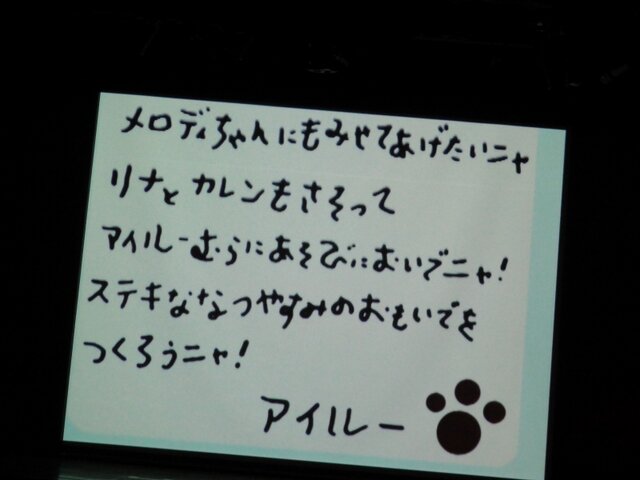 メロディちゃんにもみせてあげたいニャ
リナとカレンもさそって
アイルーむらにあそびにおいでニャ!
ステキななつやすみのおもいでを
つくろうニャ!
アイルー